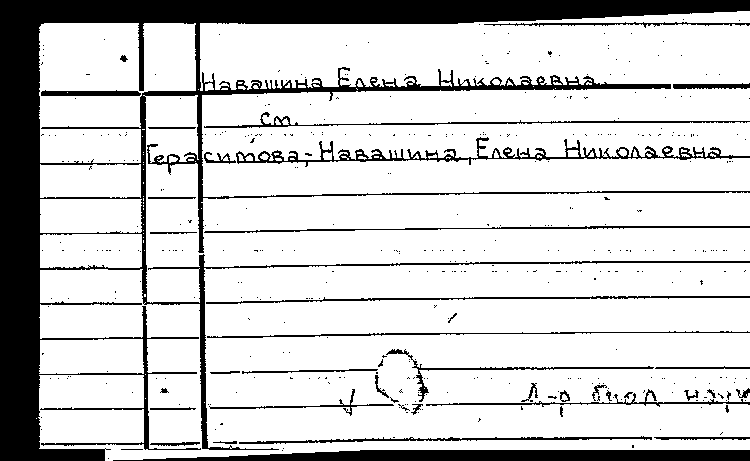 Навашина, Елена Николаевна.
см.
Герасимова-Навашина, Елена Николаевна.
Д-р биол наук